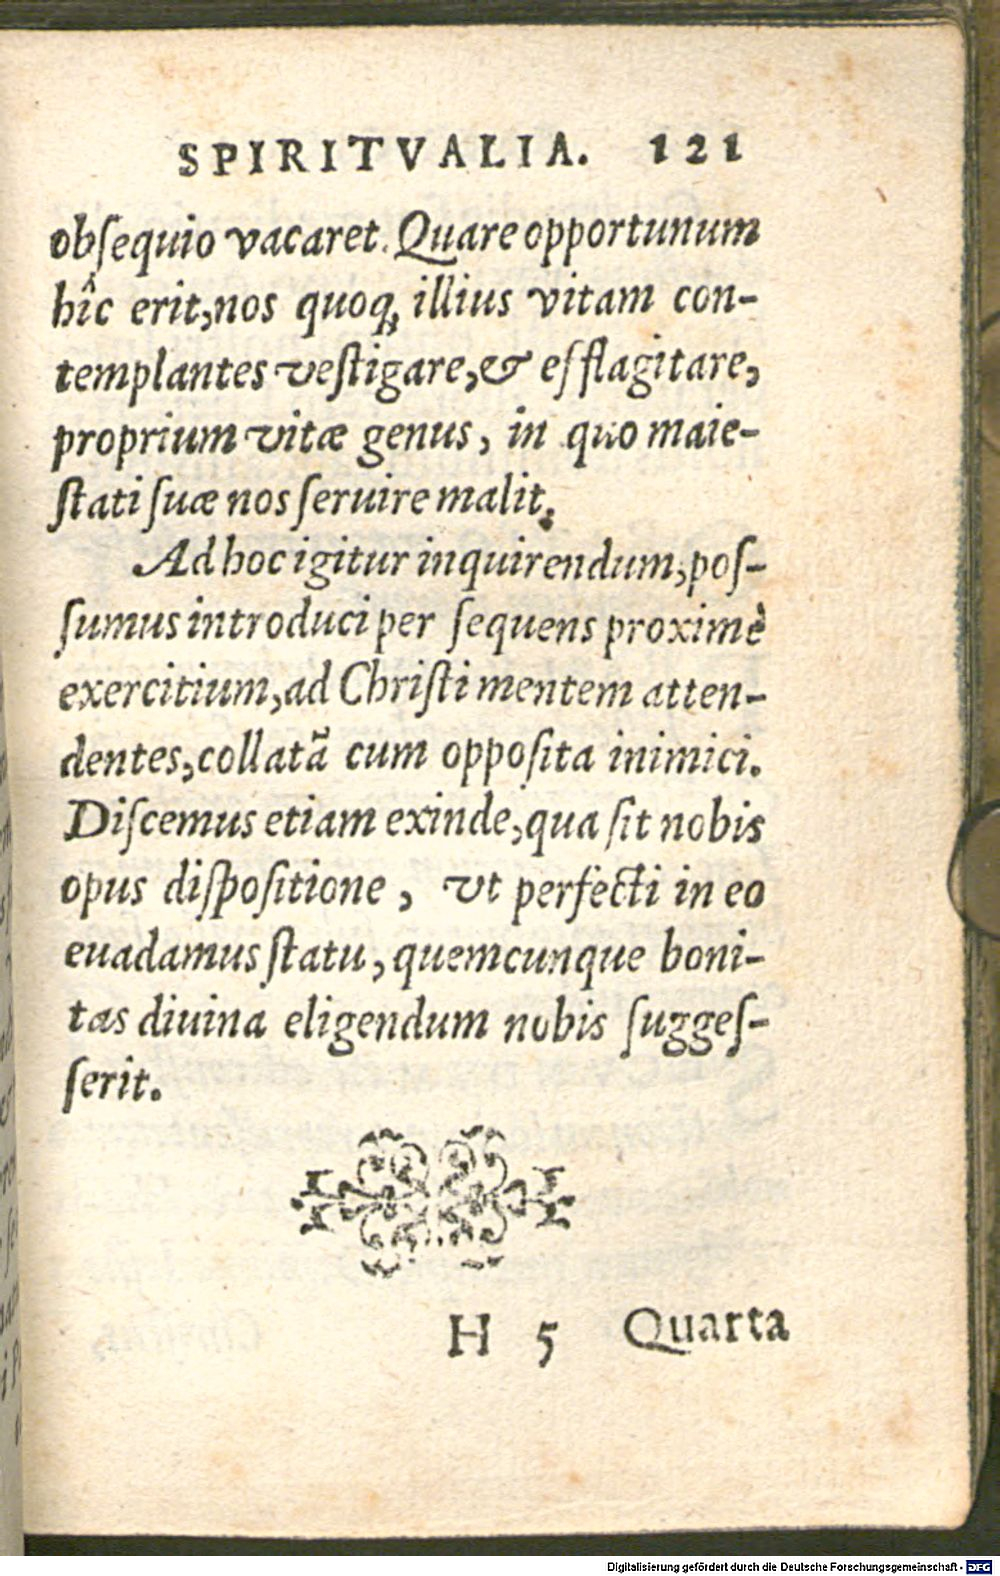 SPIRITVALIA. 121
obſequio vacaret. Quare opportunum
hîc erit, nos quoq; illius vitam con-
templantes veſtigare, & efflagitare,
proprium vitæ genus, in quo maie-
ſtati ſuæ nos ſeruire malit.
Ad hoc igitur inquirendum, poſ-
ſumus introduci per ſequens proximè
exercitium, ad Chriſti mentem atten-
dentes, collatā cum oppoſita inimici.
Diſcemus etiam exinde, qua ſit nobis
opus diſpoſitione, vt perfecti in eo
euadamus ſtatu, quemcunque boni-
tas diuina eligendum nobis ſuggeſ-
ſerit.
H 5 Quarta
Digitalisierung gefördert durch die Deutsche Forschungsgemeinschaft - DFG